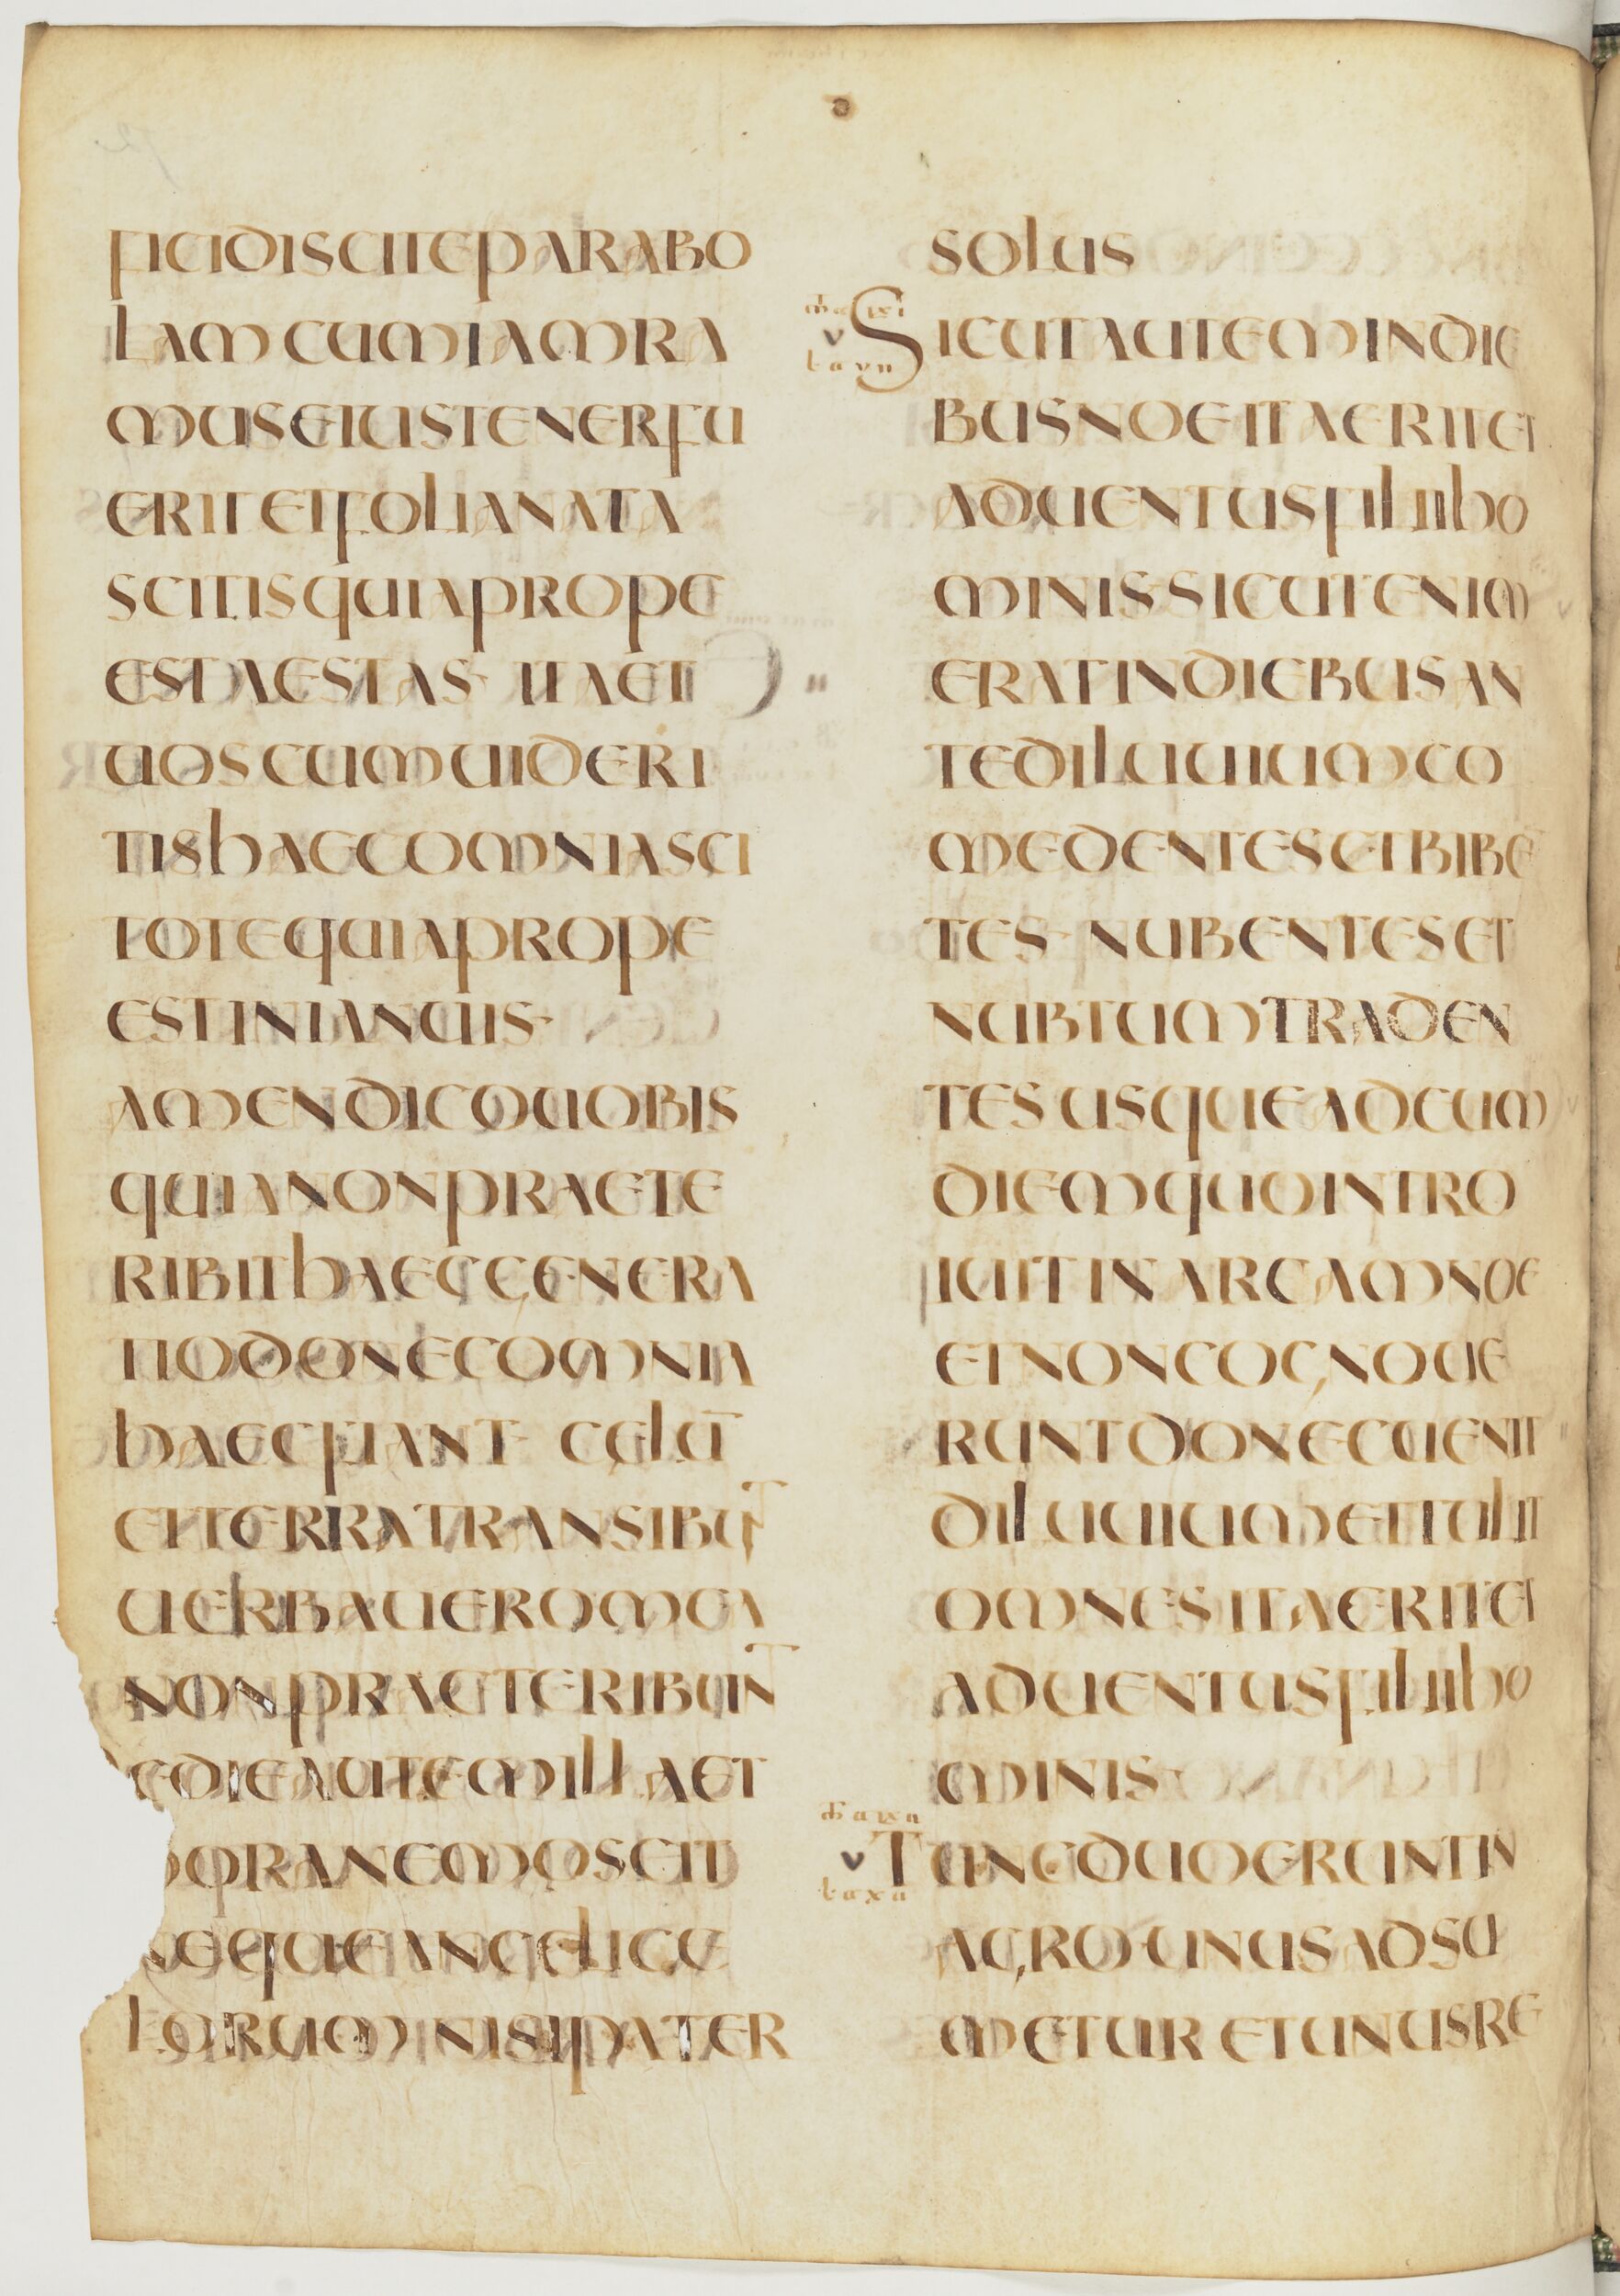 FICIDISCITEPARABO
LAMCUMIAMRA
MUSEIUSTENERFU
ERITETFOLIANATA
SCITISQUIAPROPE
ESTAESTAS· ITAET
UOSCUMUIDERI
TISHAECOMNIASCI
TOTEQUIAPROPE
ESTINIANUIS·
AMENDICOUOBIS
QUIANONPRAETE
RIBITHAECGENERA
TIODONECOMNIA
HAECFIANT· CELŪ
ETTERRATRANSIBUNT
UERBAUEROMEA
NONPRAETERIBUNT
EDIEAUTEMILLAET
ORANEMOSCIT
NEQUEANGELICE
LORUMNISIPATER
SOLUS
SICUTAUTEMINDIE
BUSNOEITAERITET
ADUENTUSFILIIHO
MINIS·SICUTENIM
ERATINDIEBUSAN
TEDILUUIUMCO
MEDENTESETBIBE
TES· NUBENTESET
NUBTUMTRADEN
TESUSQUEADEUM
DIEMQUOINTRO
IUITINARCAMNOE
ETNONCOGNOUE
RUNTDONECUENIT
DILUUIUMETTULIT
OMNESITAERITET
ADUENTUSFILIIHO
MINIS·
TUNCDUOERUNTIN
AGRO·UNUSADSU
METURETUNUSRE